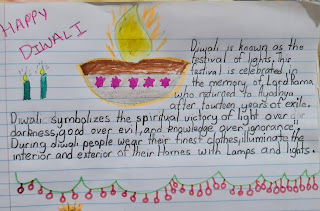 HAPPY
DIWALI
Diwali is known as the
festival of lights. This
festival is celebrated in
the memory of Lord Rama
who returned to Ayodhya
after fourteen years of exile.
Diwali symbolizes the spiritual victory of light over
darkness, good over evil, and knowledge over ignorance,
During diwali people wear their finest clothes, illuminate the
interior and exterior of their Homes with Lamps and lights.